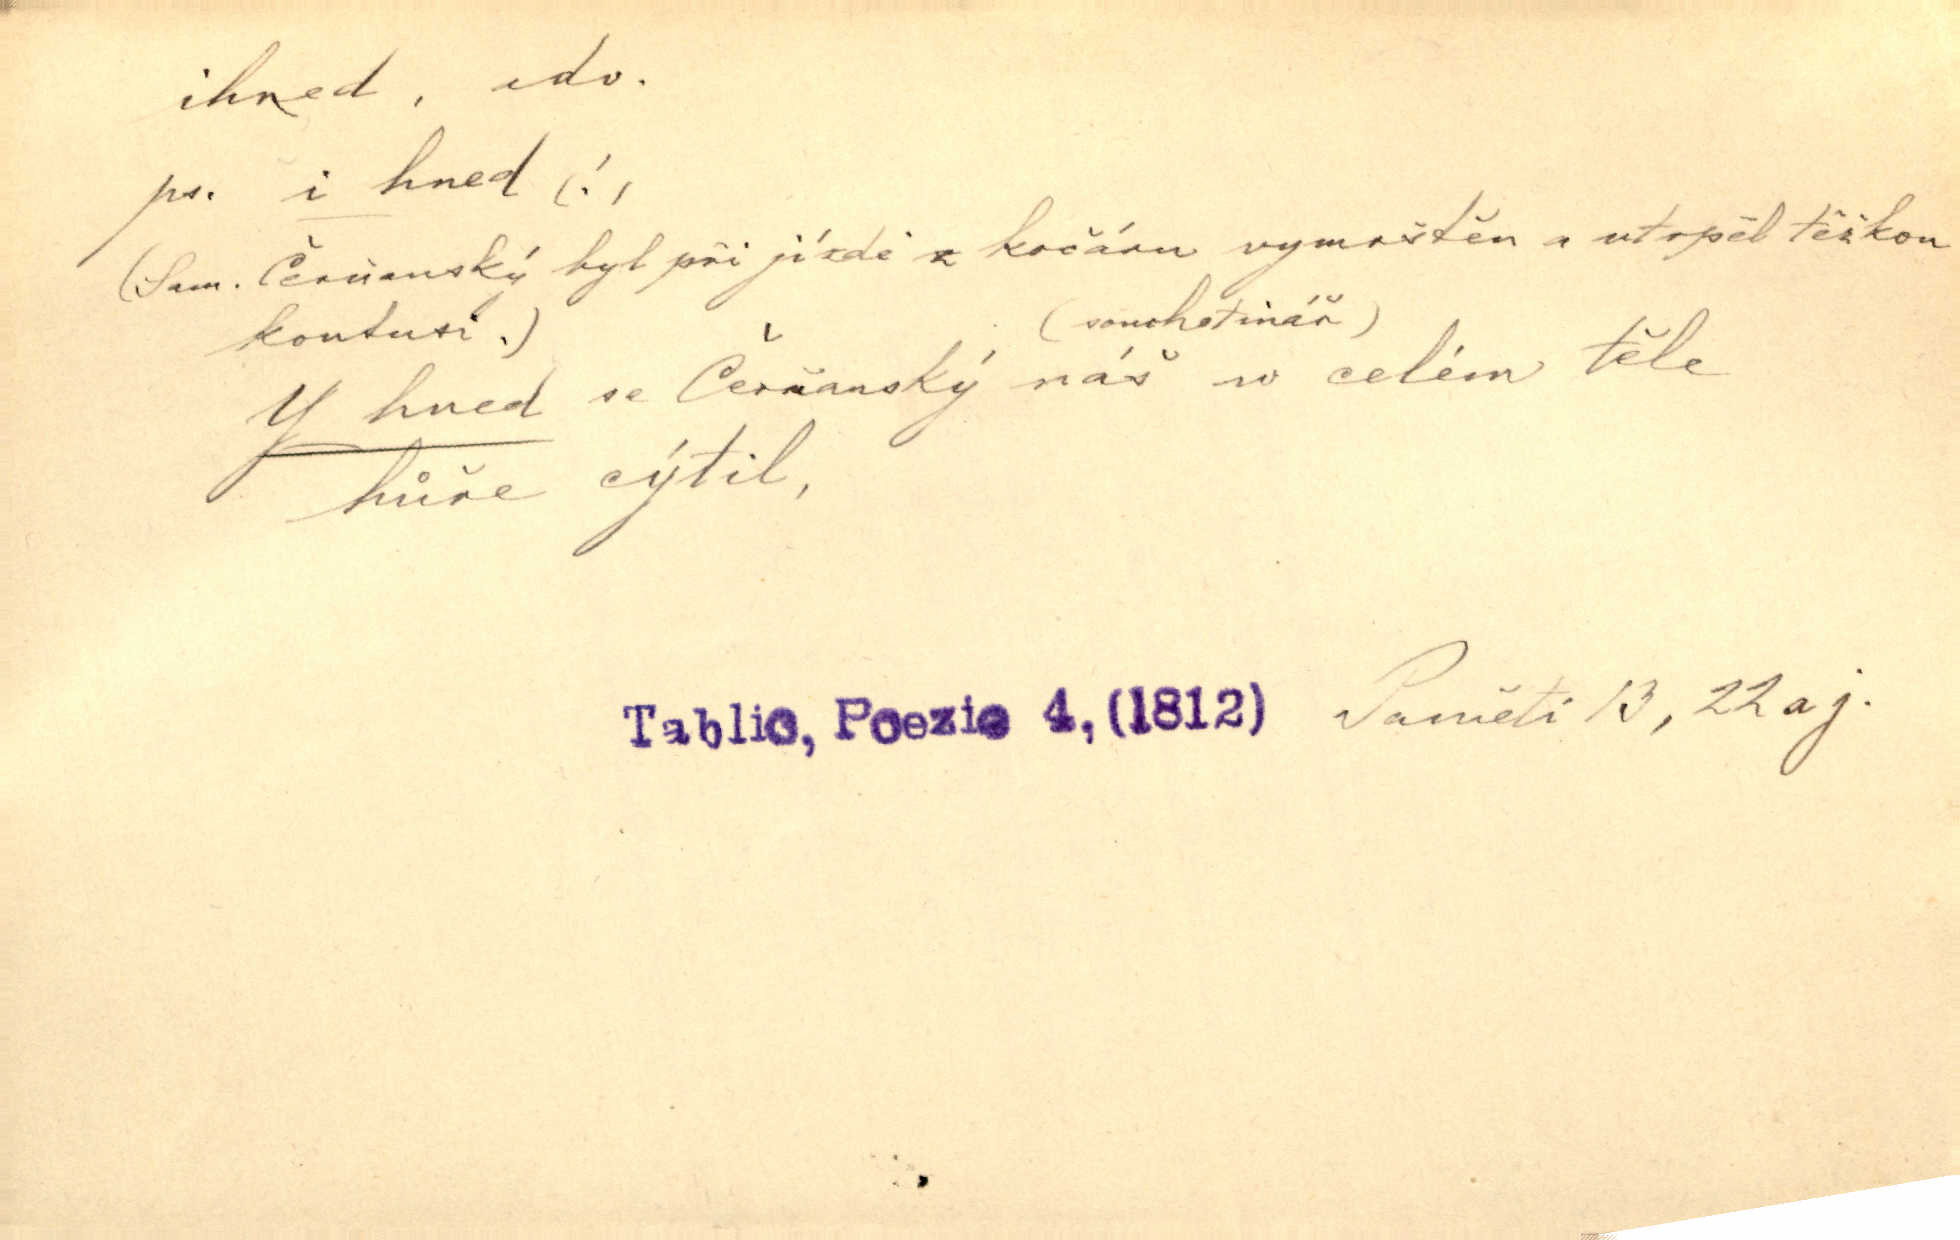 ihned, adv.
ps. i hned (!)
(Sam. Čerňanský byl při jízdě z kočáru vymrštěn a utrpěl těžkou
kontusi.)
(souchotinář)
Y hned se Čerňanský náš w celém těle
hůře cýtil,
Tablic, Poezie 4, (1812) Paměti 13, 22 aj.